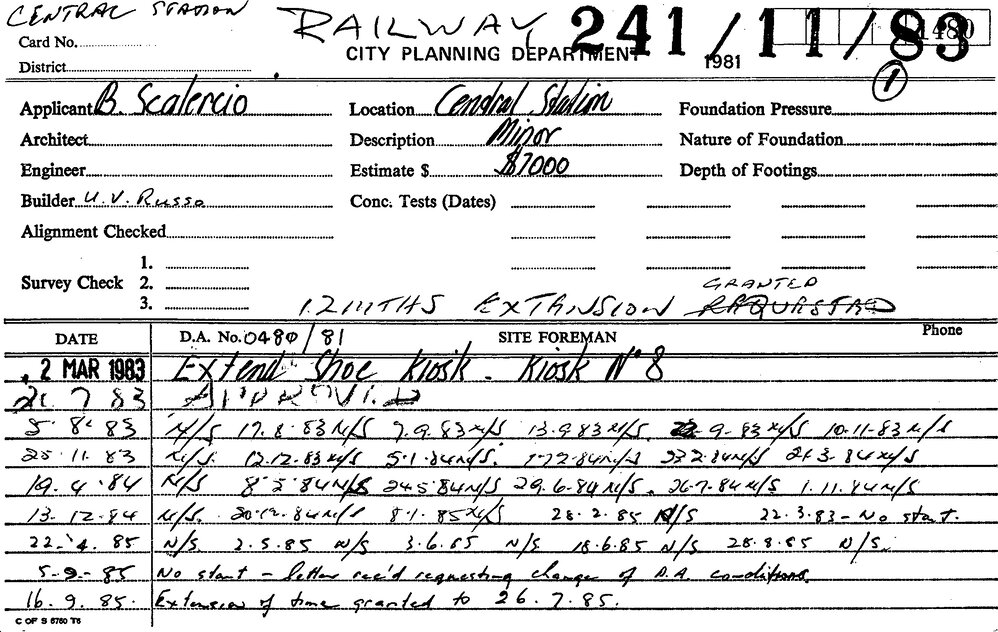 CENTRAL STATION RAILWAY 241/11/83 1480
Card No. CITY PLANNING DEPARTMENT 1981
District 1
Applicant B. Scalercio Location Central Station Foundation Pressure
Architect Description Minor Nature of Foundation
Engineer Estimate $ $7000 Depth of Footings
Builder U.V. Russo Conc. Tests (Dates)
Alignment Checked
1.
Survey Check 2. GRANTED
3. 12 MTHS EXTENSION REQUESTED
DATE D.A. No. 0480/81 SITE FOREMAN Phone
2 MAR 1983 Extend Shoe Kiosk. Kiosk No 8
7 83 APPROVED
5. 8. 83 N/S 17.8.83 N/S 7.9.83 N/S 13.9.83 N/S. 9.83 N/S 10.11.83 N/S
25.11.83 N/S. 12.12.83 N/S 5.1.84 N/S. 2.84 N/S 2.84 N/S 3.84 N/S
19.4.84 N/S 84 N/S 24.5.84 N/S 29.6.84 N/S. 26.7.84 N/S 1.11.84 N/S
13.12.84 N/S. 84 N/S 8.1.85 N/S 28.2.85 N/S 22.3.83 - No start.
22.4.85 N/S. 2.5.85 N/S 3.6.85 N/S 18.6.85 N/S 28.8.85 N/S.
5-9-85 No start - letter rec'd requesting change of D.A. conditions.
16.9.85. Extension of time granted to 26.7.85.
C OF S 6760 T6